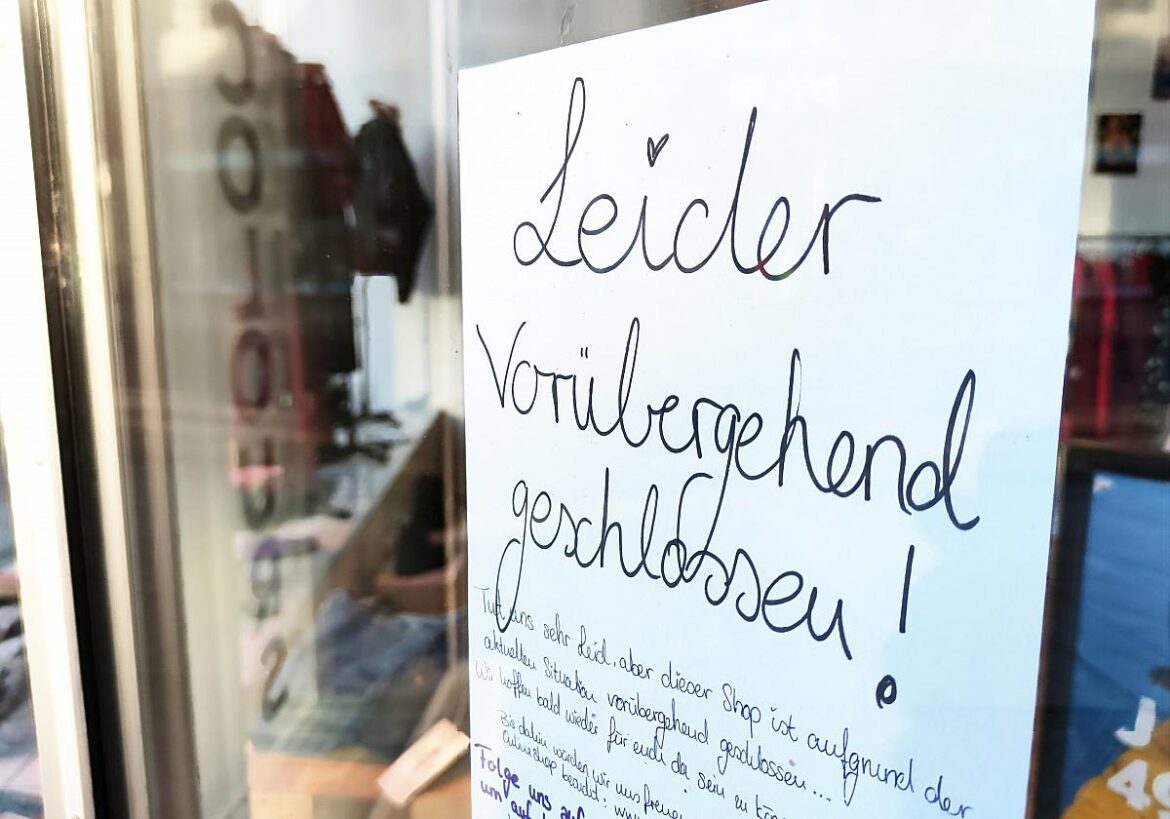 Leider
Vorübergehend
geschlossen!
Tut uns sehr Leid, aber dieser Shop ist aufgrund der
aktuellen Situation vorübergehend geschlossen...
Wir hoffen bald wieder für euch da sein zu
Bis dahin würden wir uns freuen
Onlineshop besucht: www
Folge uns auf
um auf